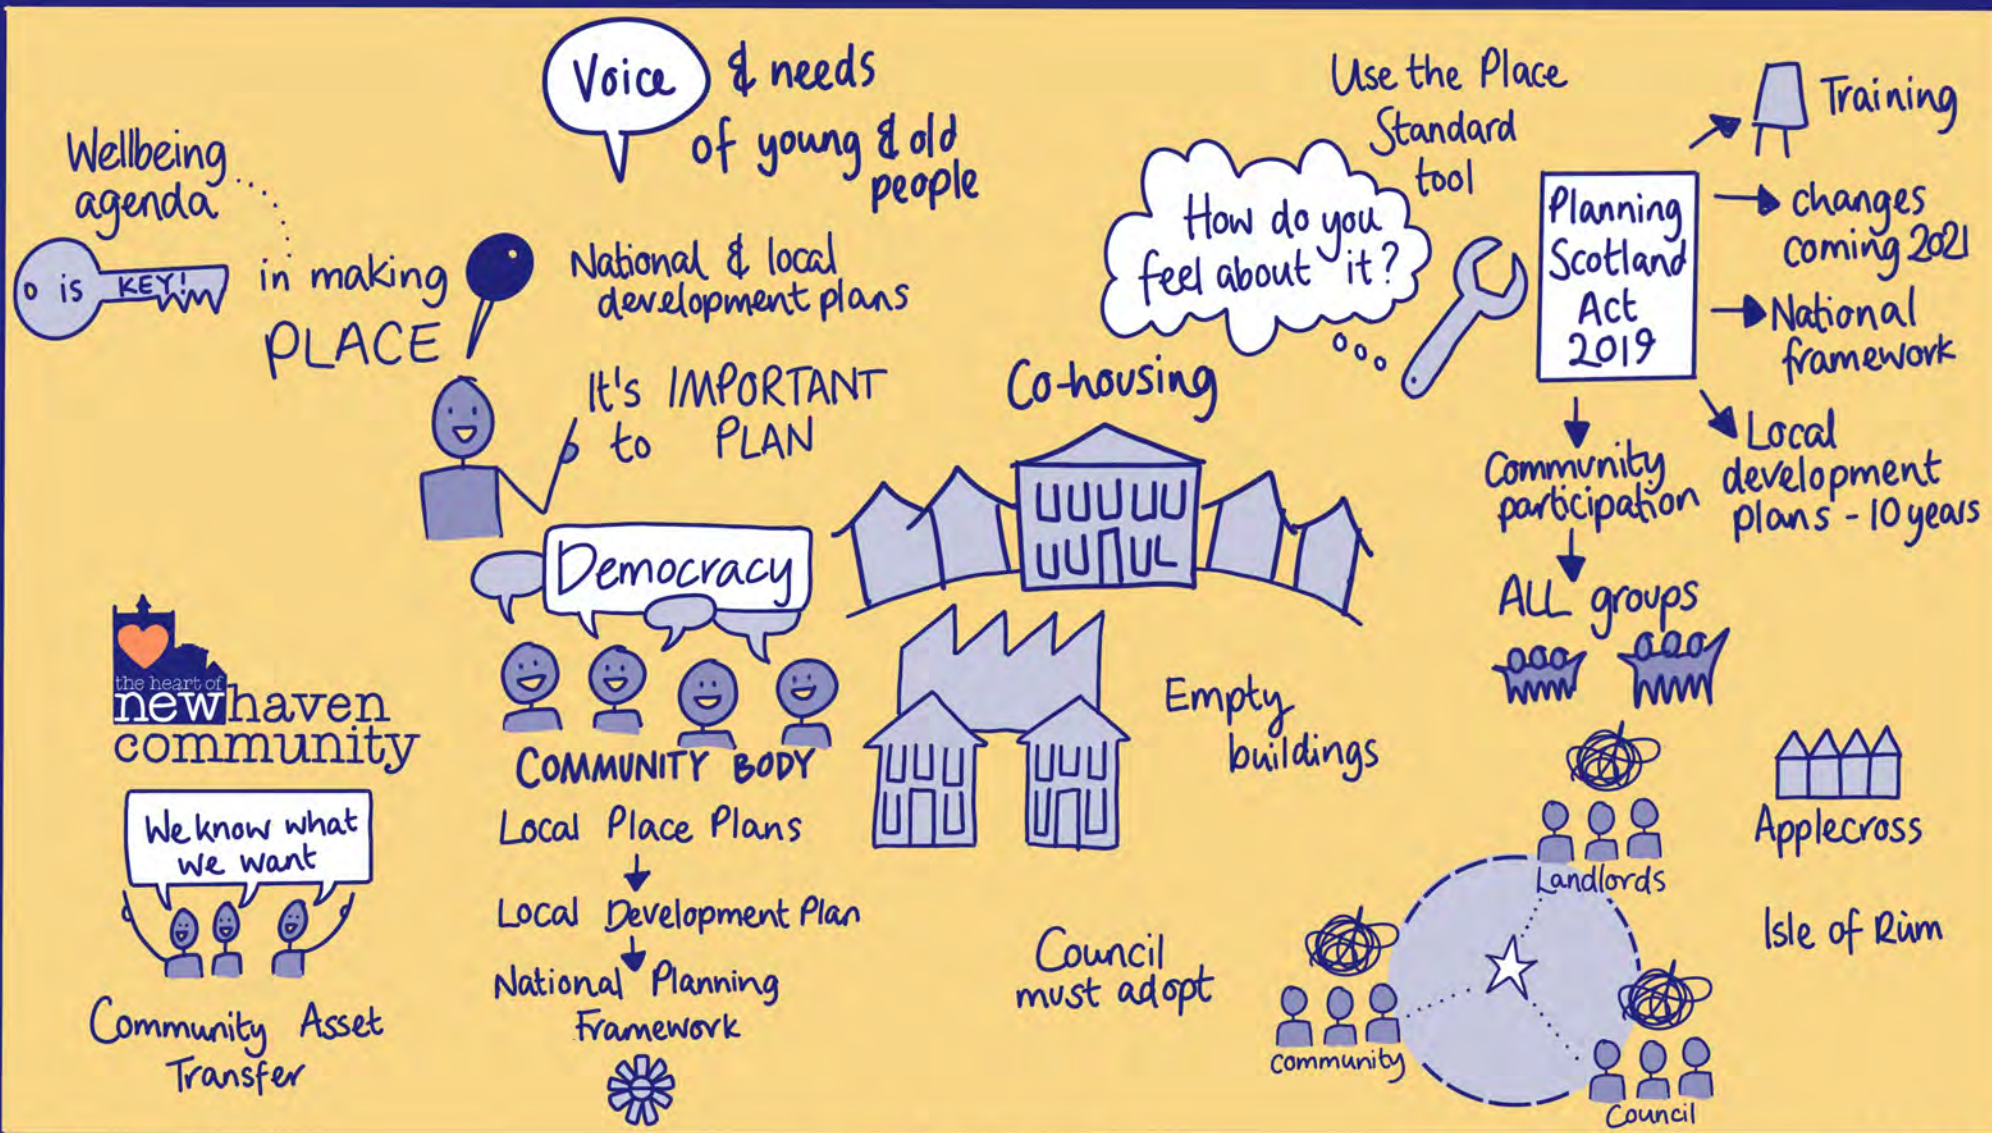 Wellbeing
agenda
is KEY!
in making
PLACE
Voice & needs
of young & old
people
National & local
development plans
It's IMPORTANT
to PLAN
Democracy
COMMUNITY BODY
Local Place Plans
Local Development Plan
National Planning
Framework
the heart of
newhaven
community
We know what
we want
Community Asset
Transfer
Co-housing
Empty
buildings
How do you
feel about it?
Use the Place
Standard
tool
Planning
Scotland
Act
2019
Training
changes
coming 2021
National
framework
Local
development
plans - 10 years
Community
participation
ALL groups
Council
must adopt
Landlords
Community
Council
Applecross
Isle of Rùm